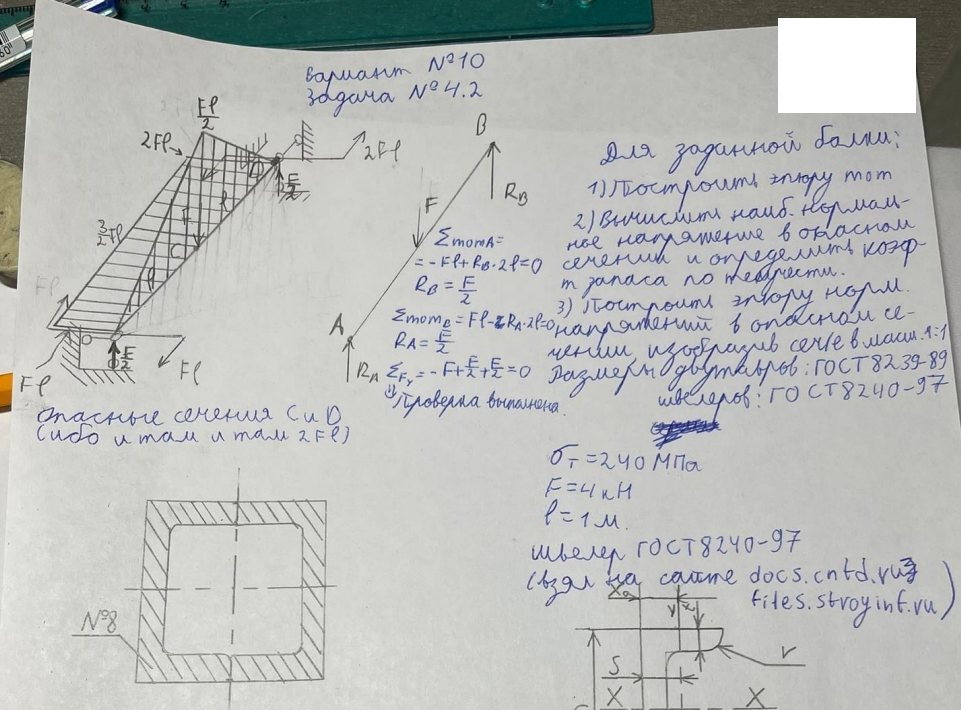 Вариант №10
Задача №4.2
Fl
2
2Fl
2Fl
F
2
3
2
Fl
F
l
C
l
D
Fl
Fl
F
2
Fl
B
RB
F
A
RA
ΣmomA=
=-Fl+RB·2l=0
RB=F/2
ΣmomB=Fl-RA·2l=0
RA=F/2
ΣFy=-F+F/2+F/2=0
⇓
Проверка выполнена.
опасные сечения C и D
(ибо и там и там 2Fl)
№8
Для заданной балки:
1) Построить эпюру mom
2) Вычислить наиб. нормаль-
ное напряжение в опасном
сечении и определить коэф-
т запаса по текучести.
3) Построить эпюру норм.
напряжений в опасном се-
чении, изобразив сеч-е в масш. 1:1
Размеры двутавров: ГОСТ 8239-89
швелеров: ГОСТ 8240-97
σт=240 МПа
F=4кН
l=1м.
швелер ГОСТ 8240-97
(взял на сайте docs.cntd.ru
files.stroyinf.ru)
X₀
y
S
r
X
X